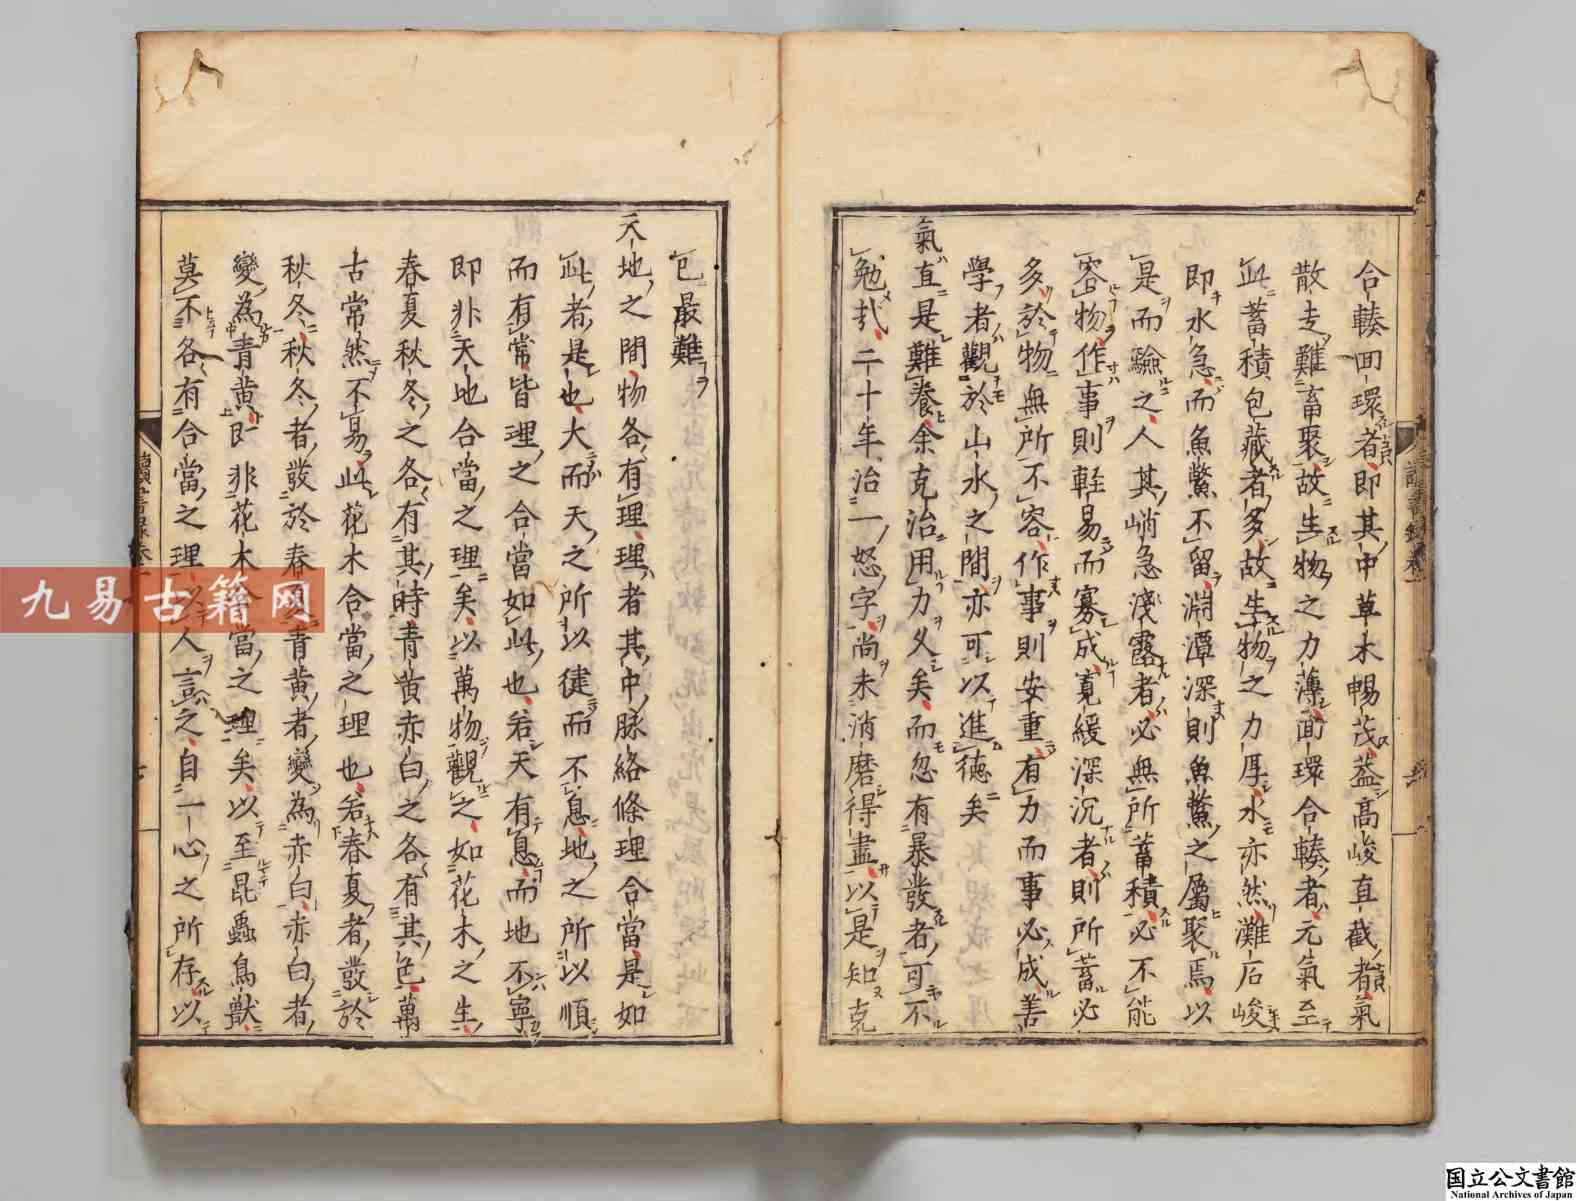 合輳回環者即其中草木暢茂葢高峻直截者氣
散走難畜聚故生物之力薄面環合輳者元氣至
此蓄積包藏者多故生物之力厚水亦然灘石峻
即水急而魚鱉不留淵潭深則魚鱉之屬聚焉以
是而驗之人其峭急淺露者必無所蓄積必不能
容物作事則輕易而寡成寬緩深沉者則所蓄必
多於物無所不容作事則安重有力而事必成善
學者觀於山水之間亦可以進德矣
氣直是難養余克治用力久矣而忽有暴發者可不
勉哉二十年治一怒字尚未消磨得盡以是知克
己最難
天地之間物各有理理者其中脉絡條理合當是如
此者是也大而天之所以健而不息地之所以順
而有常皆理之合當如此也若天有息而地不寧
即非天地合當之理矣以萬物觀之如花木之生
春夏秋冬之各有其時青黄赤白之各有其色萬
古常然不易此花木合當之理也若春夏者發於
秋冬秋冬者發於春夏青黄者變為赤白赤白者
變為青黄即非花木合當之理矣以至昆蟲鳥獸
莫不各有合當之理以人言之自一心之所存以
讀書錄卷一
七
九易古籍网
国立公文書館
National Archives of Japan